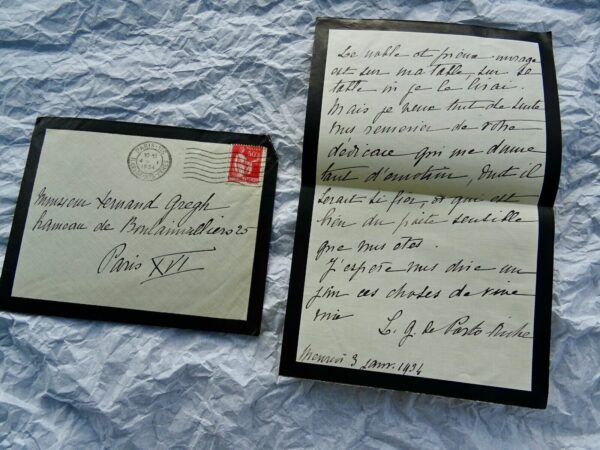 Monsieur Fernand Gregh
hameau de Boulainvilliers 25
Paris XVI
PARIS
1934
Le noble et pieux ouvrage
est sur ma table, sur sa
table où je le lirai.
Mais je veux tout de suite
vous remercier de votre
dédicace qui me donne
tant d'émotion, dont il
serait si fier, et qui est
bien du poète sensible
que vous êtes.
J'espère vous dire un
jour ces choses de vive
voix
L. G. de Porto Riche
3 janv. 1934